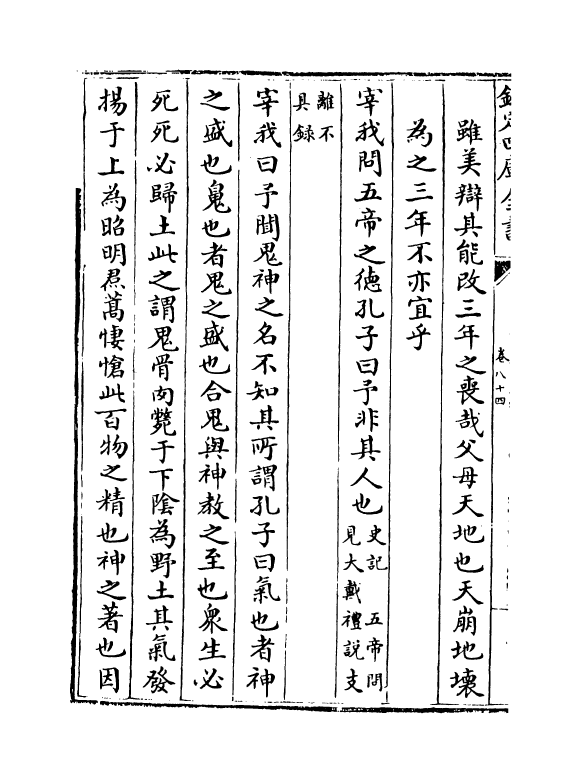 欽定四庫全書
卷八十四
雖美辯其能改三年之喪哉父母天地也天崩地壞
為之三年不亦宜乎
宰我問五帝之德孔子曰予非其人也
史記 五帝問
見大戴禮說支
離不
具録
宰我曰予聞鬼神之名不知其所謂孔子曰氣也者神
之盛也鬼也者鬼之盛也合鬼與神教之至也衆生必
死死必歸土此之謂鬼骨肉斃于下陰為野土其氣發
揚于上為昭明焄蒿悽愴此百物之精也神之著也因